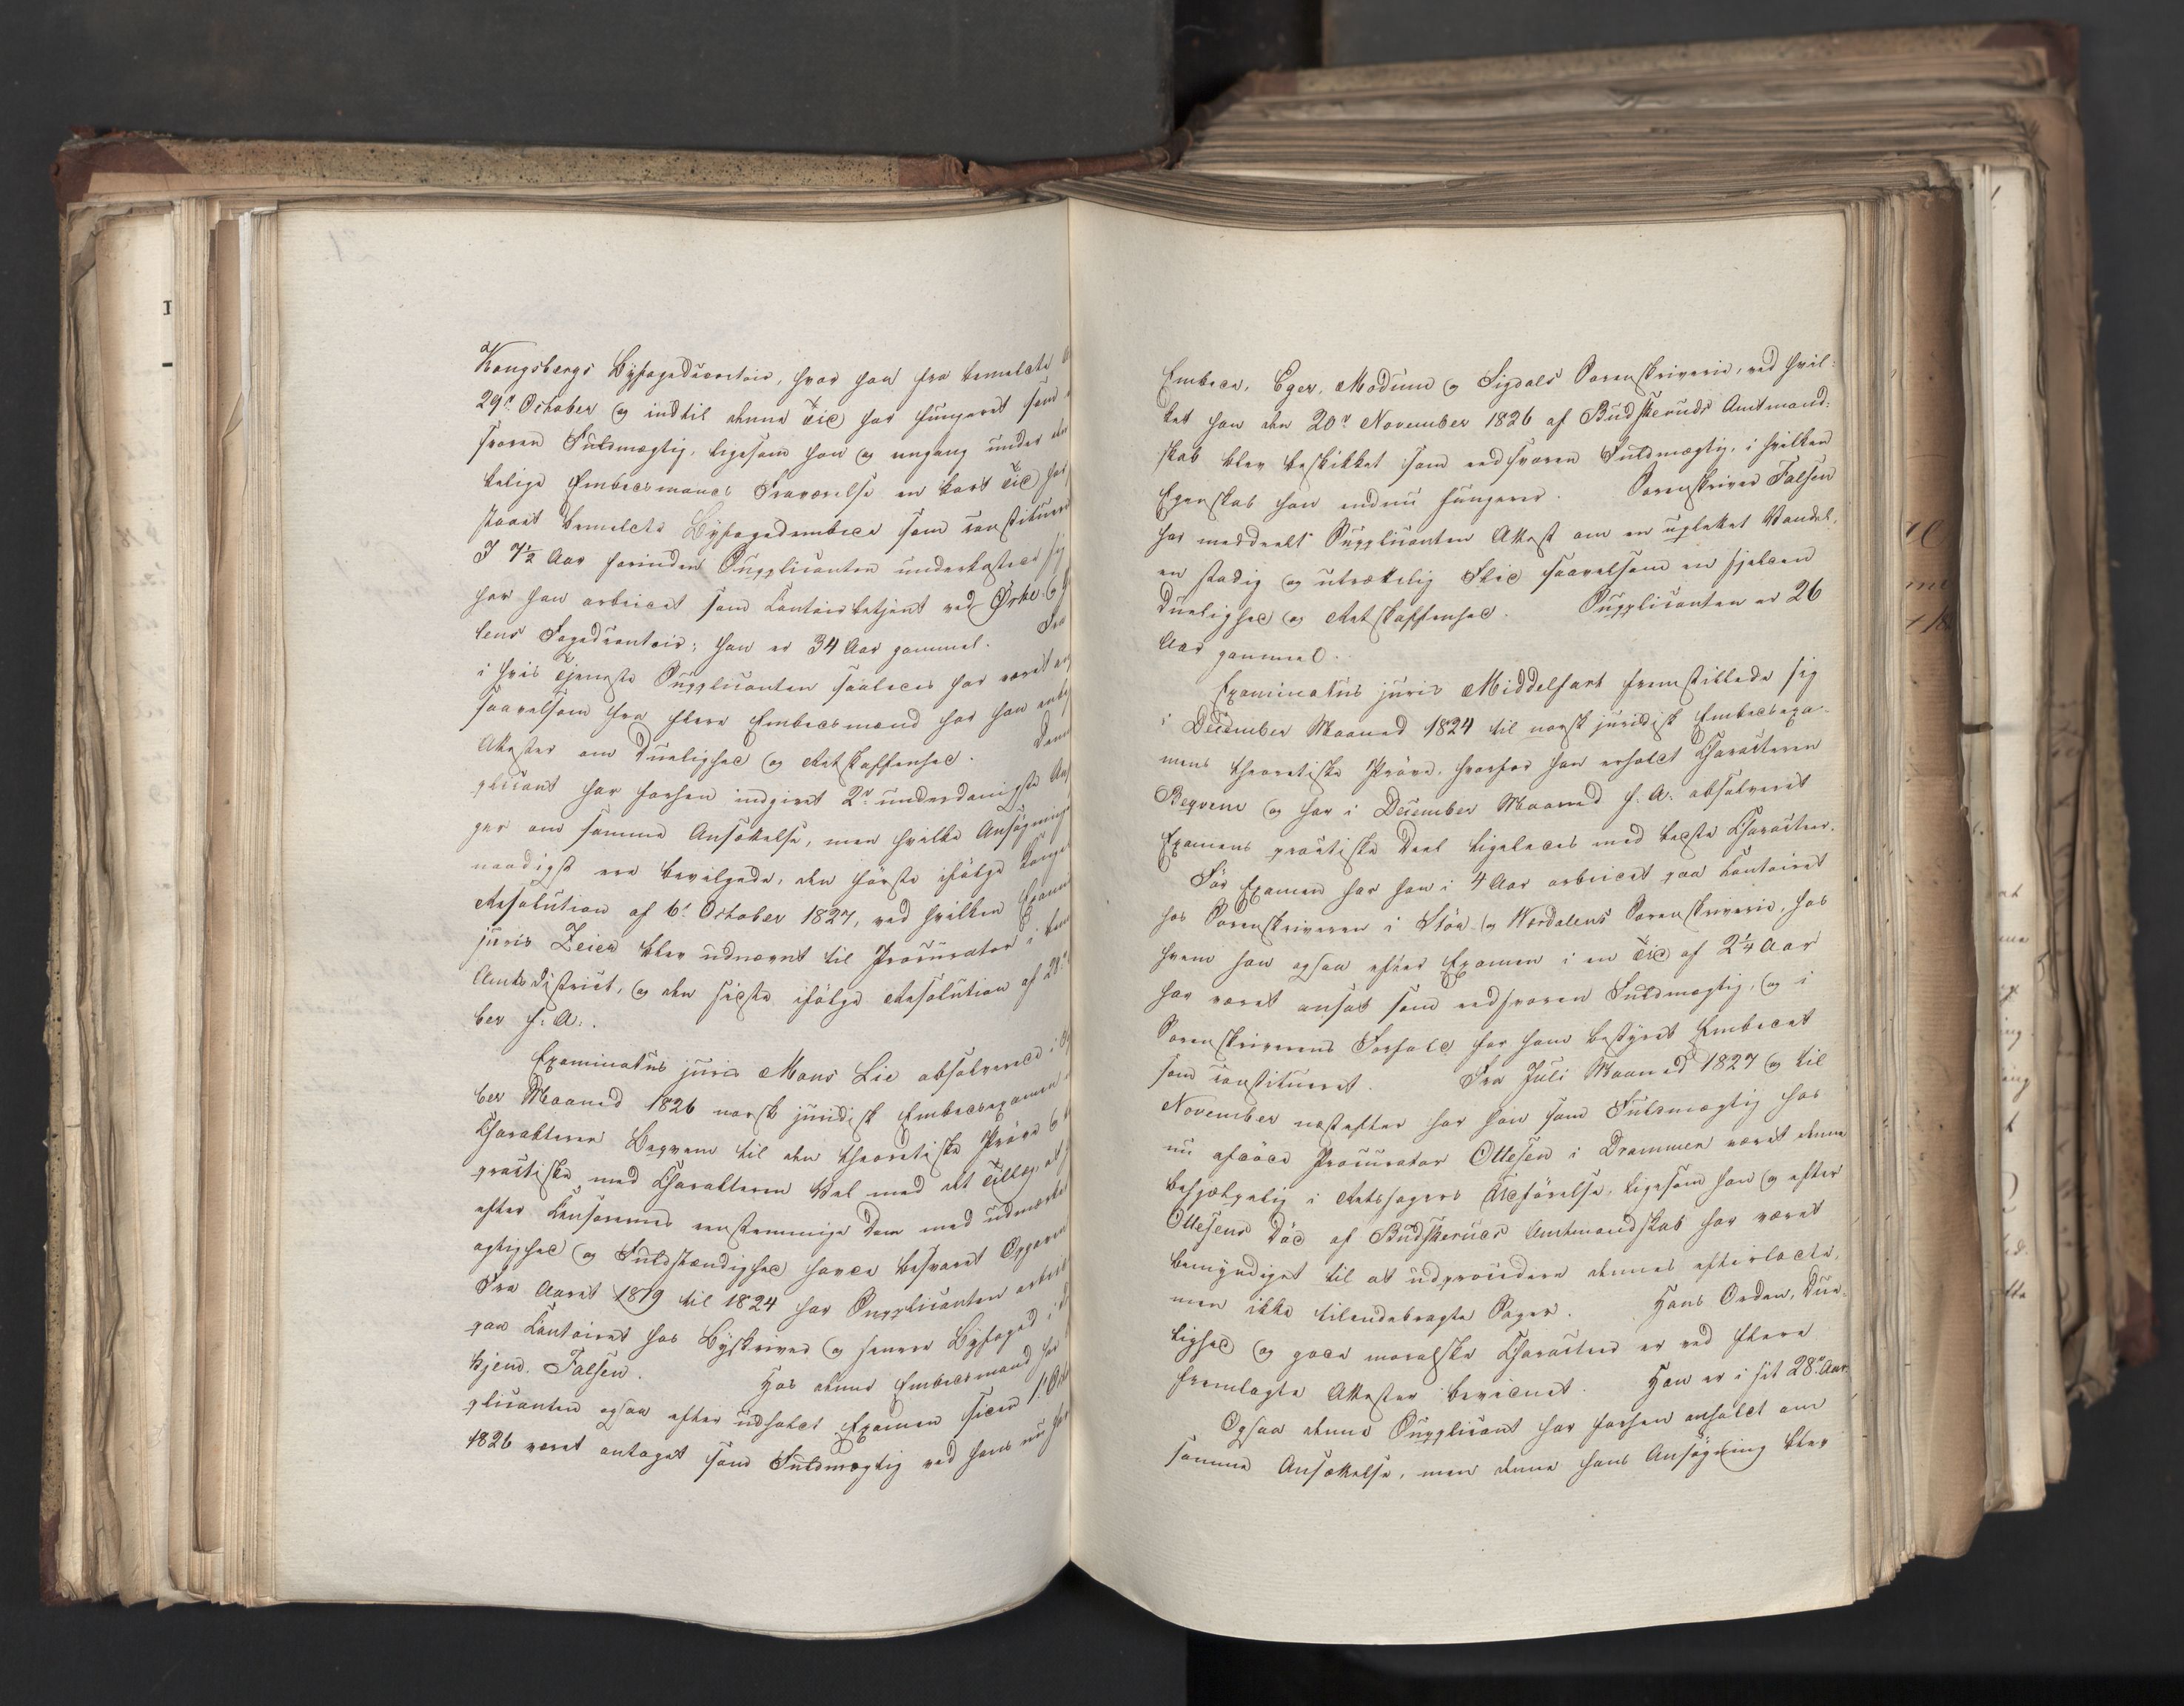 Kongsbergs Byfogedcontoir, hvor han fra bemeldte
29de October og indtil denne Tid har fungeret som
svoren Fuldmægtig, ligesom han og engang under
kelige Embedsmands Fraværelse en kort Tid har
staaet bemeldte Byfogedembede som constitueret
I 7½ Aar forinden Supplicanten underkastede sig
har han arbeidet som Contoirbetjent ved Ørke- og
lens Fogedcontoir; han er 34 Aar gammel. Fra
i hvis Tjeneste Supplicanten saaledes har været
saavelsom fra flere Embedsmænd har han
Attester om Duelighed og Retskaffenhed. Denne
plicant har forhen indgivet 2de underdanigste
ger om samme Ansættelse, men hvilke Ansøgninger
naadigst ere bevilgede, den første ifølge
Resolution af 6te October 1827, ved hvilken
juris Zeier blev udnævnt til Procurator i
Amtsdistrict, og den sidste ifølge Resolution af 28
ber f: A:.
Examinatus juris Mons Lie absolverede i
ber Maaned 1826 norsk juridisk Embedsexamen
Charakteren Beqvem til den theoretiske Prøve og
practiske med Charakteren Vel med det Tillæg at
efter Censorernes eenstemmige Dom med udmærket
agtighed og Fuldstændighed havde besvaret Opgaven
Fra Aaret 1819 til 1824 har Supplicanten arbeidet
paa Contoiret hos Byskriver og senere Byfoged i
kjend. Falsen. Hos denne Embedsmand har
plicanten ogsaa efter udholdt Examen siden 1ste
1826 været antaget som Fuldmægtig ved hans nu
Embede, Eger, Modum og Sigdals Sorenskriverie, ved hvil-
ket han den 20de November 1826 af Budskeruds Amtmand-
skab blev beskikket som eedsvoren Fuldmægtig, i hvilken
Egenskab han endnu fungerer. Sorenskriver Falsen
har meddeelt Supplicanten Attest om en uplettet Vandel,
en stadig og utrættelig Flid saavelsom en sjelden
Duelighed og Retskaffenhed. Supplicanten er 26
Aar gammel.
Examinatus juris Middelfart fremstillede sig
i December Maaned 1824 til norsk juridisk Embedsexa-
mens theoretiske Prøve, hvorfor han erholdt Characteren
Beqvem og har i December Maaned f: A: absolveret
Examens practiske Deel ligeledes med bedste Character.
Før Examen har han i 4 Aar arbeidet paa Contoiret
hos Sorenskriveren i Stør- og Værdalens Sorenskriverie, hos
hvem han ogsaa efter Examen i en Tid af 2¼ Aar
har været ansat som eedsvoren Fuldmægtig, og i
Sorenskriverens Forfald har han bestyret Embedet
som constitueret. Fra Juli Maaned 1827 og til
November næstefter har han som Fuldmægtig hos
nu afdøde Procurator Ottesen i Drammen været denne
behjælpelig i Retssagers Udførelse, ligesom han og efter
Ottesens Død af Budskeruds Amtmandskab har været
bemyndiget til at udprocedere dennes efterladte,
men ikke tilendebragte Sager. Hans Orden, Due-
lighed og gode moralske Character er ved flere
fremlagte Attester bevidnet. Han er i sit 28de Aar.
Ogsaa denne Supplicant har forhen anholdt om
samme Ansættelse, men denne hans Ansøgning blev